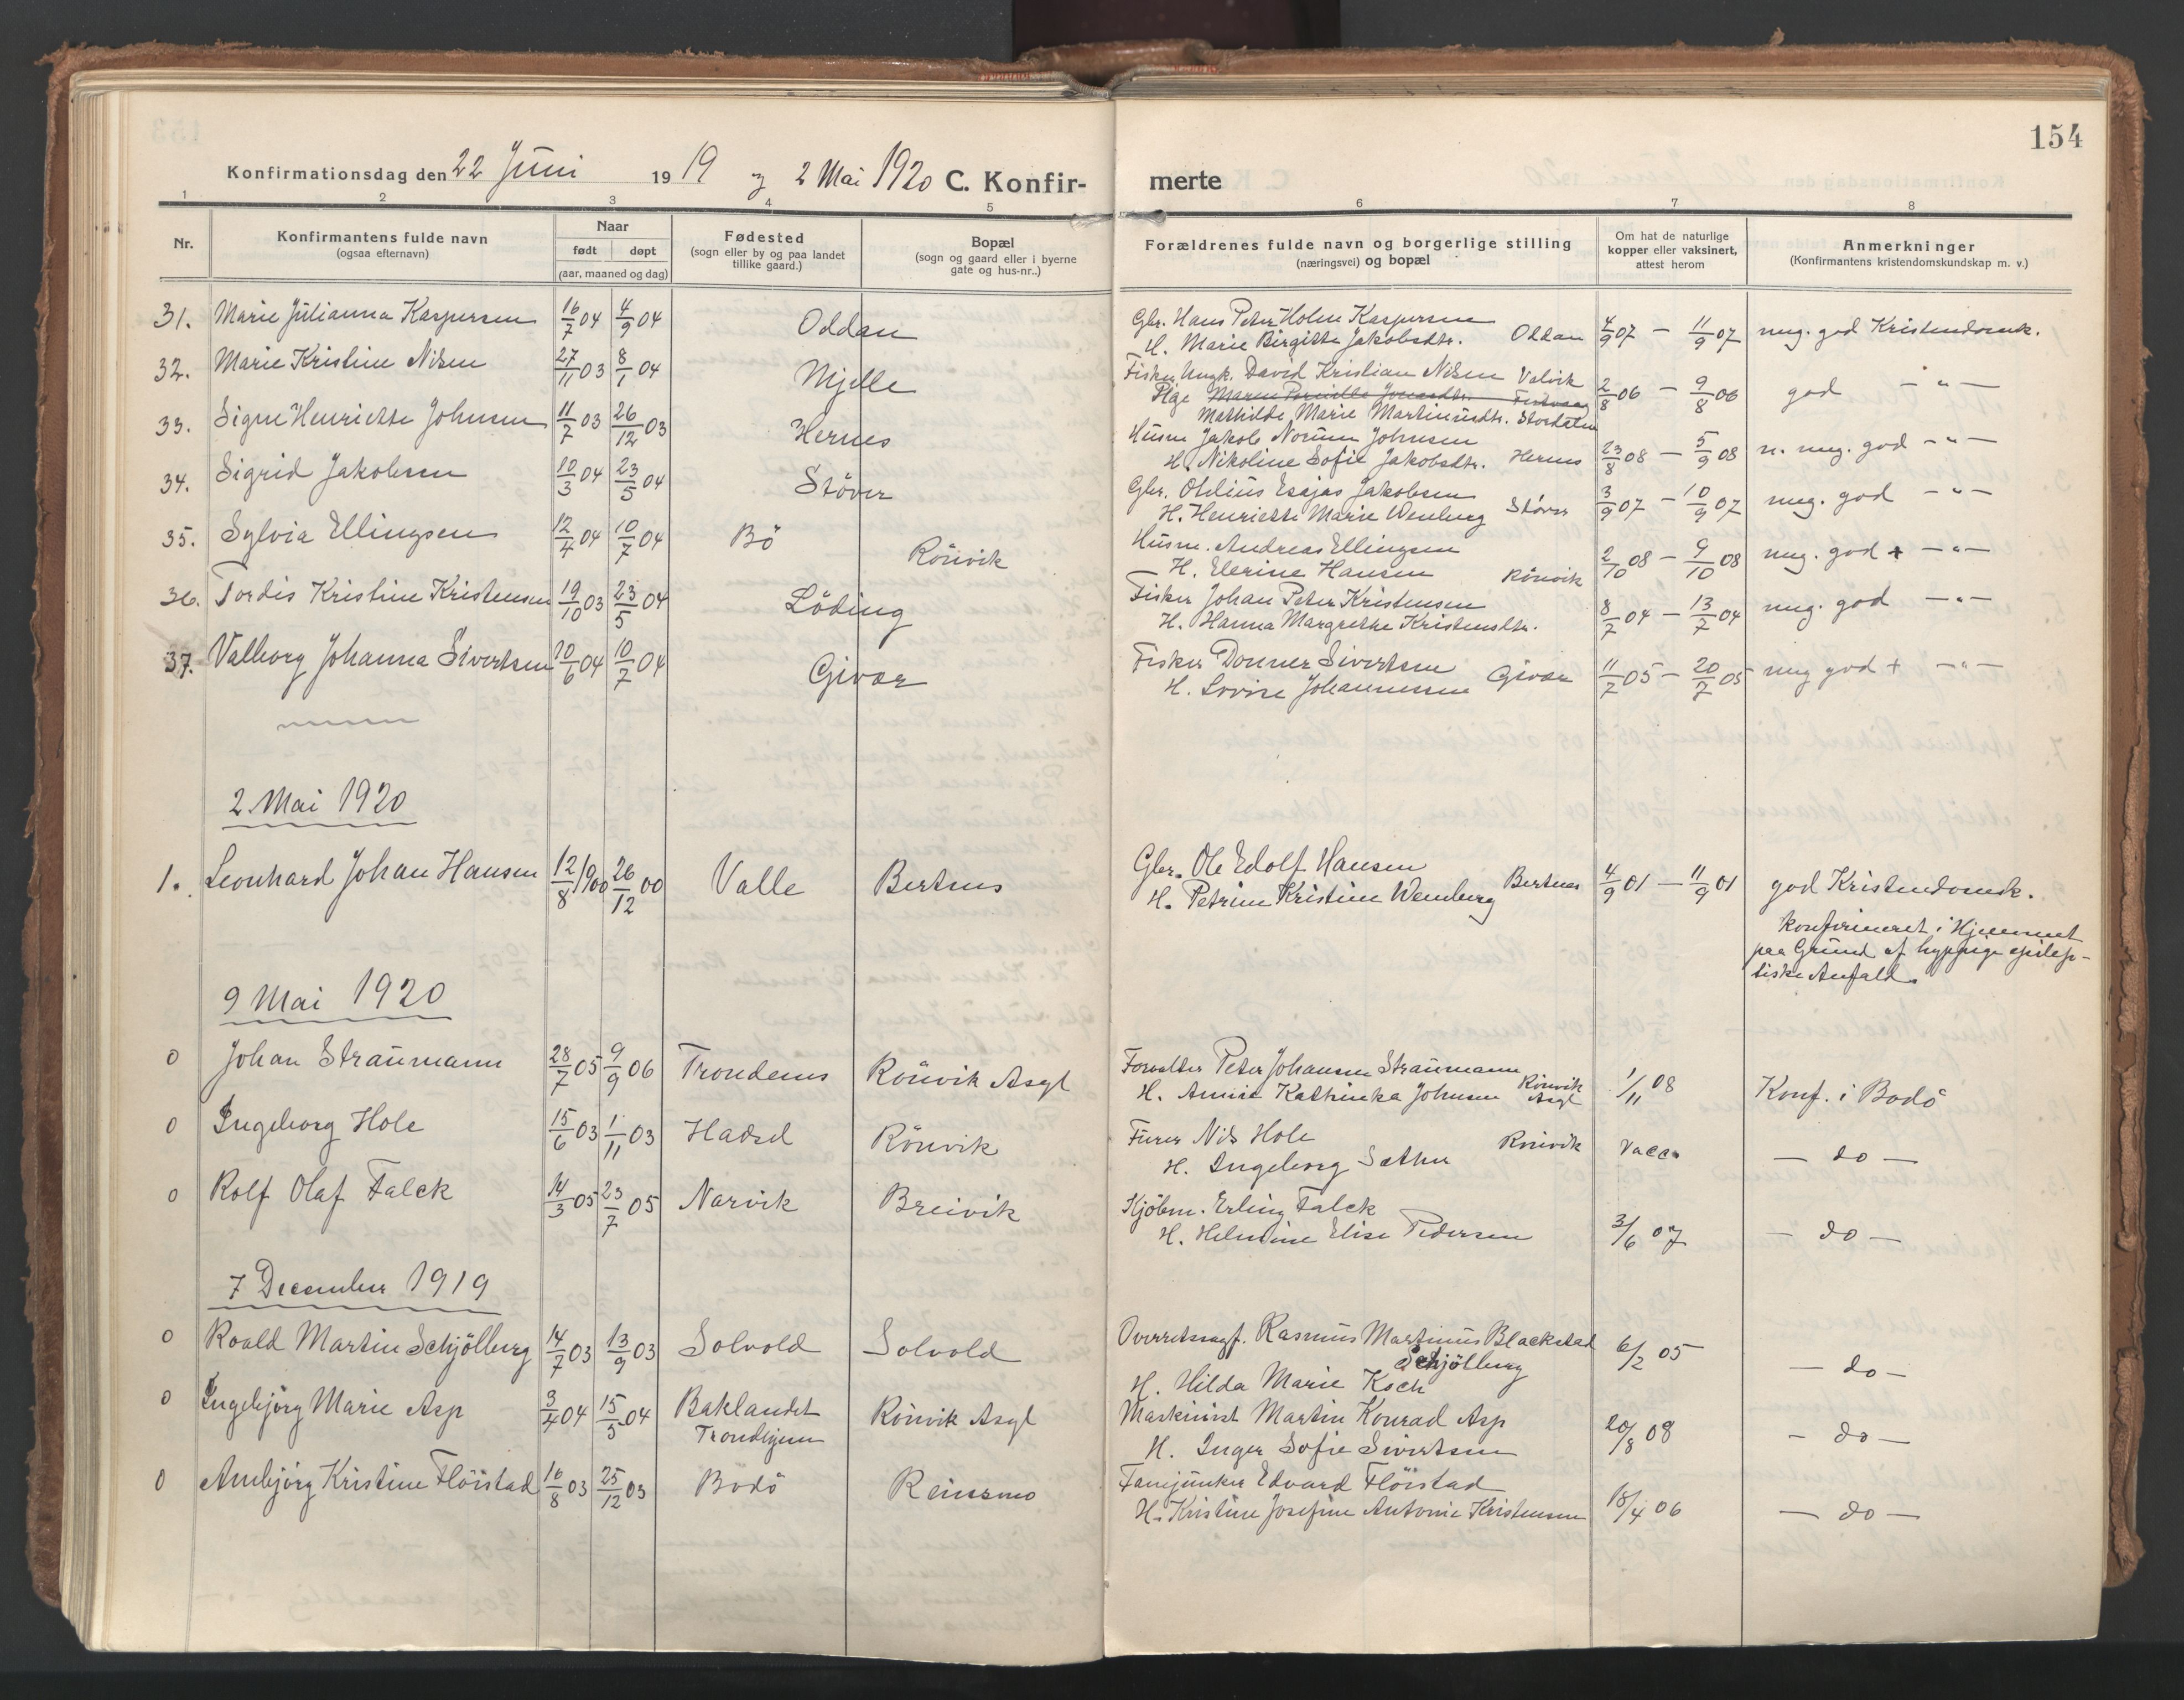 154
Konfirmationsdag den 22 Juni 1919 og 2 Mai 1920 C. Konfir- merte
1 2 3 4 5 6 7 8
Nr.
Konfirmantens fulde navn
(ogsaa efternavn)
Naar
født døpt
(aar, maaned og dag)
Fødested
(sogn eller by og paa landet
tillike gaard.)
Bopæl
(sogn og gaard eller i byerne
gate og hus-nr..)
Forældrenes fulde navn og borgerlige stilling
(næringsvei) og bopæl
Om hat de naturlige
kopper eller vaksinert,
attest herom
Anmerkninger
(Konfirmantens kristendomskundskap m. v.)
31. Marie Julianna Kaspersen 16/7 04 4/9 04 Oddan Gbr. Hans Peter Holm Kaspersen
H. Marie Birgitte Jakobsdtr. Oddan 4/9 07 — 11/9 07 meg. god Kristendomsk.
32. Marie Kristine Nilsen 27/11 03 8/1 04 Mjelle Fisker Ungk. David Kristian Nilsen Valvik
Pige Maren Pernille Jonasdtr.
Mathilde Marie Martinusdtr. Stordalen 2/8 06 — 9/8 06 god — " —
33. Signe Henriette Johnsen 11/7 03 26/12 03 Hernes Husm Jakob Norum Johnsen
H. Nikoline Sofie Jakobsdtr. Hernes 23/8 08 — 5/9 08 n. meg. god — " —
34. Sigrid Jakobsen 10/3 04 23/5 04 Støver Gbr. Otelius Esajas Jakobsen
H. Henriette Marie Wenberg Støver 3/9 07 — 10/9 07 meg. god — " —
35. Sylvia Ellingsen 12/4 04 10/7 04 Bö Rönvik Husm. Andreas Ellingsen
H. Elerine Hansen Rönvik 2/10 08 — 9/10 08 meg. god + — " —
36. Tordis Kristine Kristensen 19/10 03 23/5 04 Löding Fisker Johan Peter Kristensen
H. Hanna Margrethe Kristensdtr. 8/7 04 — 13/7 04 meg. god — " —
37. Valborg Johanna Sivertsen 20/6 04 10/7 04 Givær Fisker Donner Sivertsen
H. Lovise Johannessen Givær 11/7 05 — 20/7 05 meg god + — " —
2. Mai 1920
1. Leonhard Johan Hansen 12/8 1900 26/12 00 Valle Bertnes Gbr. Ole Edolf Hansen
H. Petrine Kristine Wenberg Bertnes 4/9 01 — 11/9 01 god Kristendomsk.
konfirmeret i Hjemmet
paa Grund af hyppige epilep-
tiske Anfald.
9 Mai 1920
0 Johan Straumann 28/7 05 9/9 06 Trondenes Rönvik Asyl Forvalter Peter Johansen Straumann
H. Annie Kathinka Johnsen Rönvik Asyl 1/11 08 Konf. i Bodö
0 Ingeborg Hole 15/6 03 1/11 03 Hadsel Rönvik Furer Nils Hole
H. Ingeborg Sæther Rönvik Vacc. — do —
0 Rolf Olaf Falck 14/3 05 23/7 05 Narvik Breivik Kjöbm. Erling Falck
H. Helmine Elise Pedersen 3/6 07 — do —
7 December 1919
0 Roald Martin Schjölberg 14/7 03 13/9 03 Solvold Solvold Overretssagf. Rasmus Martinus Blackstad
Schjölberg
H. Hilda Marie Koch 6/2 05 — do —
0 Ingebjörg Marie Asp 3/4 04 15/5 04 Baklandet
Trondhjem Rönvik Asyl Maskinist Martin Konrad Asp
H. Inger Sofie Sivertsen 20/8 08 — do —
0 Arnbjörg Kristine Flöistad 16/8 03 25/12 03 Bodö Reinsmo Fanejunker Edvard Flöistad
H. Kristine Josefine Antonie Kristensen 18/4 06 — do —